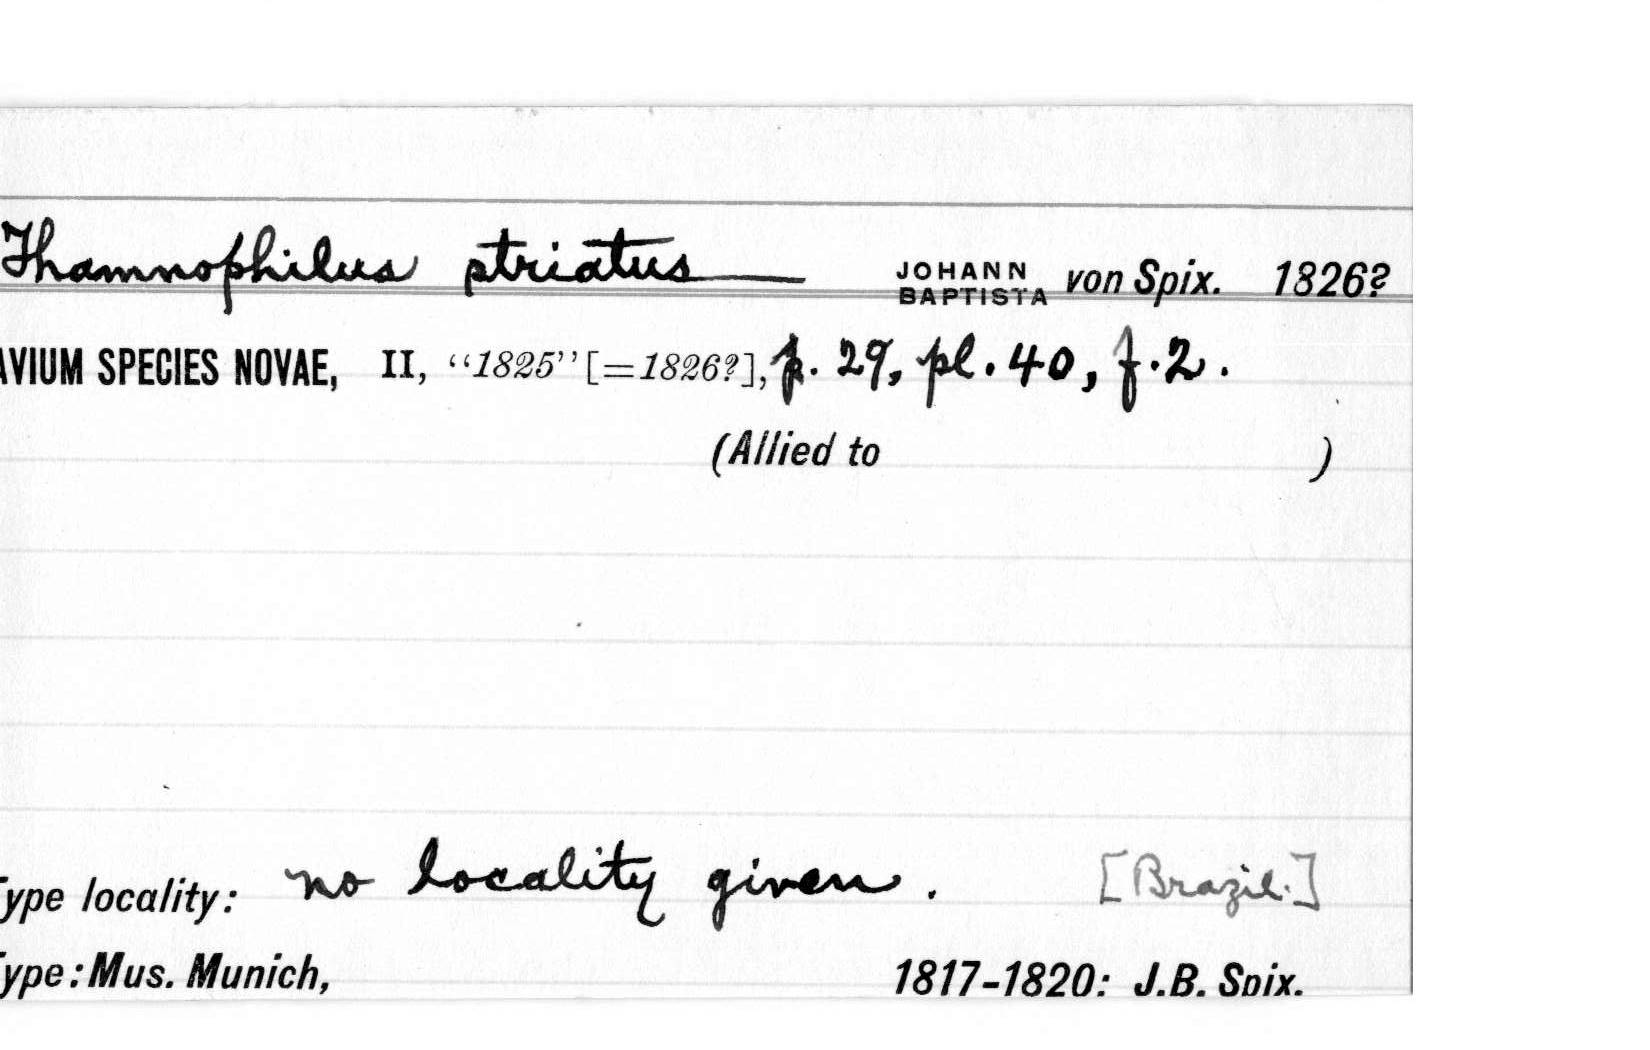 Thamnophilus striatus JOHANN BAPTISTA von Spix. 1826?
AVIUM SPECIES NOVAE, II, “1825” [=1826?], p. 29, pl. 40, f. 2.
(Allied to )
Type locality: no locality given. [Brazil.]
Type: Mus. Munich, 1817-1820: J.B. Spix.